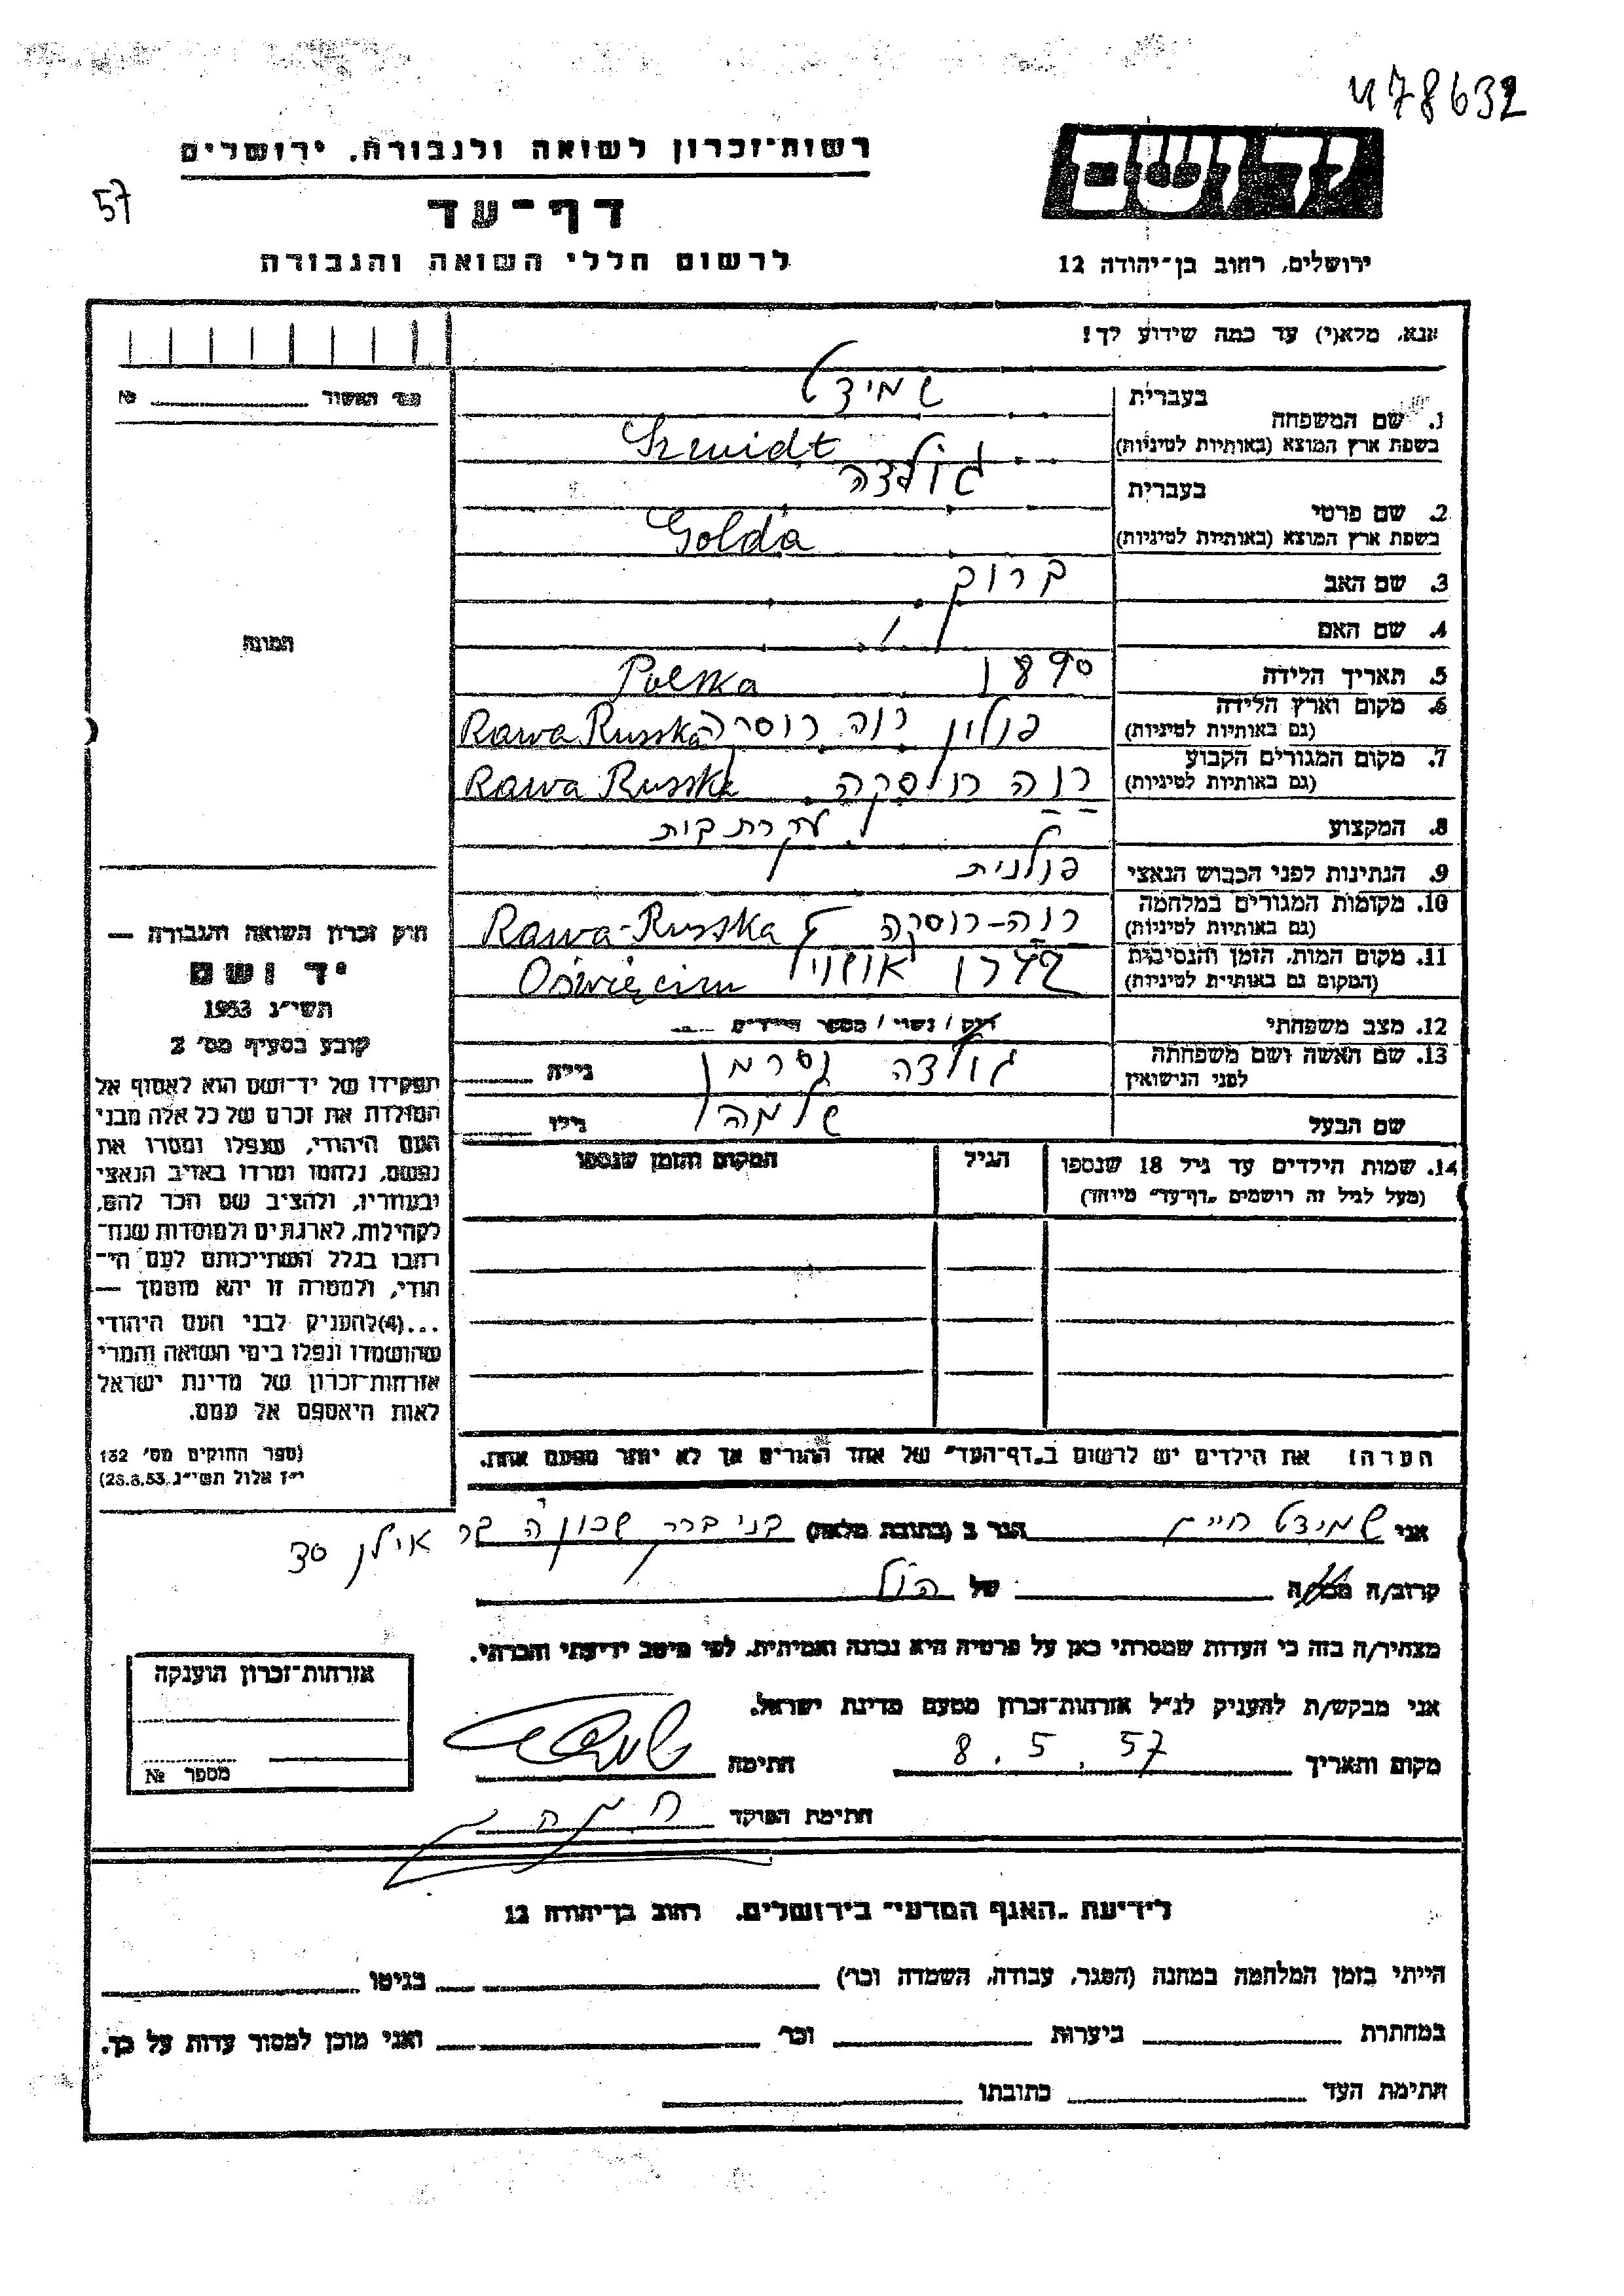 478632
רשות־זכרון לשואה ולגבורה. ירושלים
57
יד ושם
דף־עד
לרשום חללי השואה והגבורה
ירושלים, רחוב בן־יהודה 12
אנא, מלא(י) עד כמה שידוע לך!
מס' האשור № 
1. שם המשפחה
בעברית שמידט
בשפת ארץ המוצא (באותיות לטיניות) Szmidt
2. שם פרטי
בעברית גולדה
בשפת ארץ המוצא (באותיות לטיניות) Golda
3. שם האב ברוך
4. שם האם
התמונה
5. תאריך הלידה 1890 Polska
6. מקום וארץ הלידה (גם באותיות לטיניות) פולין רוה רוסקה Rawa Russka
7. מקום המגורים הקבוע (גם באותיות לטיניות) רוה רוסקה Rawa Russka
8. המקצוע עקרת בית
9. הנתינות לפני הכבוש הנאצי פולנית
10. מקומות המגורים במלחמה (גם באותיות לטיניות) רוה-רוסקה Rawa-Russka
11. מקום המות, הזמן והנסיבות (המקום גם באותיות לטיניות) Oświęcim
12. מצב משפחתי רוק / נשוי / מספר הילדים
13. שם האשה ושם משפחתה לפני הנישואין גולדה גילה
שם הבעל שלמה גילו
14. שמות הילדים עד גיל 18 שנספו
(מעל לגיל זה רושמים „דף־עד" מיוחד)
הגיל
המקום והזמן שנספו
הערה! את הילדים יש לרשום ב„דף־העד" של אחד ההורים אך לא יותר מפעם אחת.
חוק זכרון השואה והגבורה —
יד ושם
תשי״ג 1953
קובע בסעיף מס׳ 2
תפקידו של יד־ושם הוא לאסוף אל
המולדת את זכרם של כל אלה מבני
העם היהודי, שנפלו ומסרו את
נפשם, נלחמו ומרדו באויב הנאצי
ובעוזריו, ולהציב שם וזכר להם,
לקהילות, לארגונים ולמוסדות שנח־
רבו בגלל השתייכותם לעם הי־
הודי, ולמטרה זו יהא מוסמך —
...(4) להעניק לבני העם היהודי
שהושמדו ונפלו בימי השואה והמרי
אזרחות־זכרון של מדינת ישראל
לאות היאספם אל עמם.
(ספר החוקים מס׳ 132
י״ז אלול תשי״ג 28.8.53)
אני שמידט חיים הגר ב (כתובת מלאה) בני ברק שכונה בר אילן 30
קרוב/ה מכר/ה של הנ"ל
מצהיר/ה בזה כי העדות שמסרתי כאן על פרטיה היא נכונה ואמיתית, לפי מיטב ידיעתי והכרתי.
אני מבקש/ת להעניק לנ״ל אזרחות־זכרון מטעם מדינת ישראל.
מקום ותאריך 8.5.57 חתימה
חתימת הפוקד
אזרחות־זכרון הוענקה
מספר №
לידיעת „האגף המדעי" בירושלים, רחוב בן־יהודה 12
הייתי בזמן המלחמה במחנה (הסגר, עבודה, השמדה וכו׳) בגיטו
במחתרת ביערות וכו׳ ואני מוכן למסור עדות על כך.
חתימת העד כתובתו